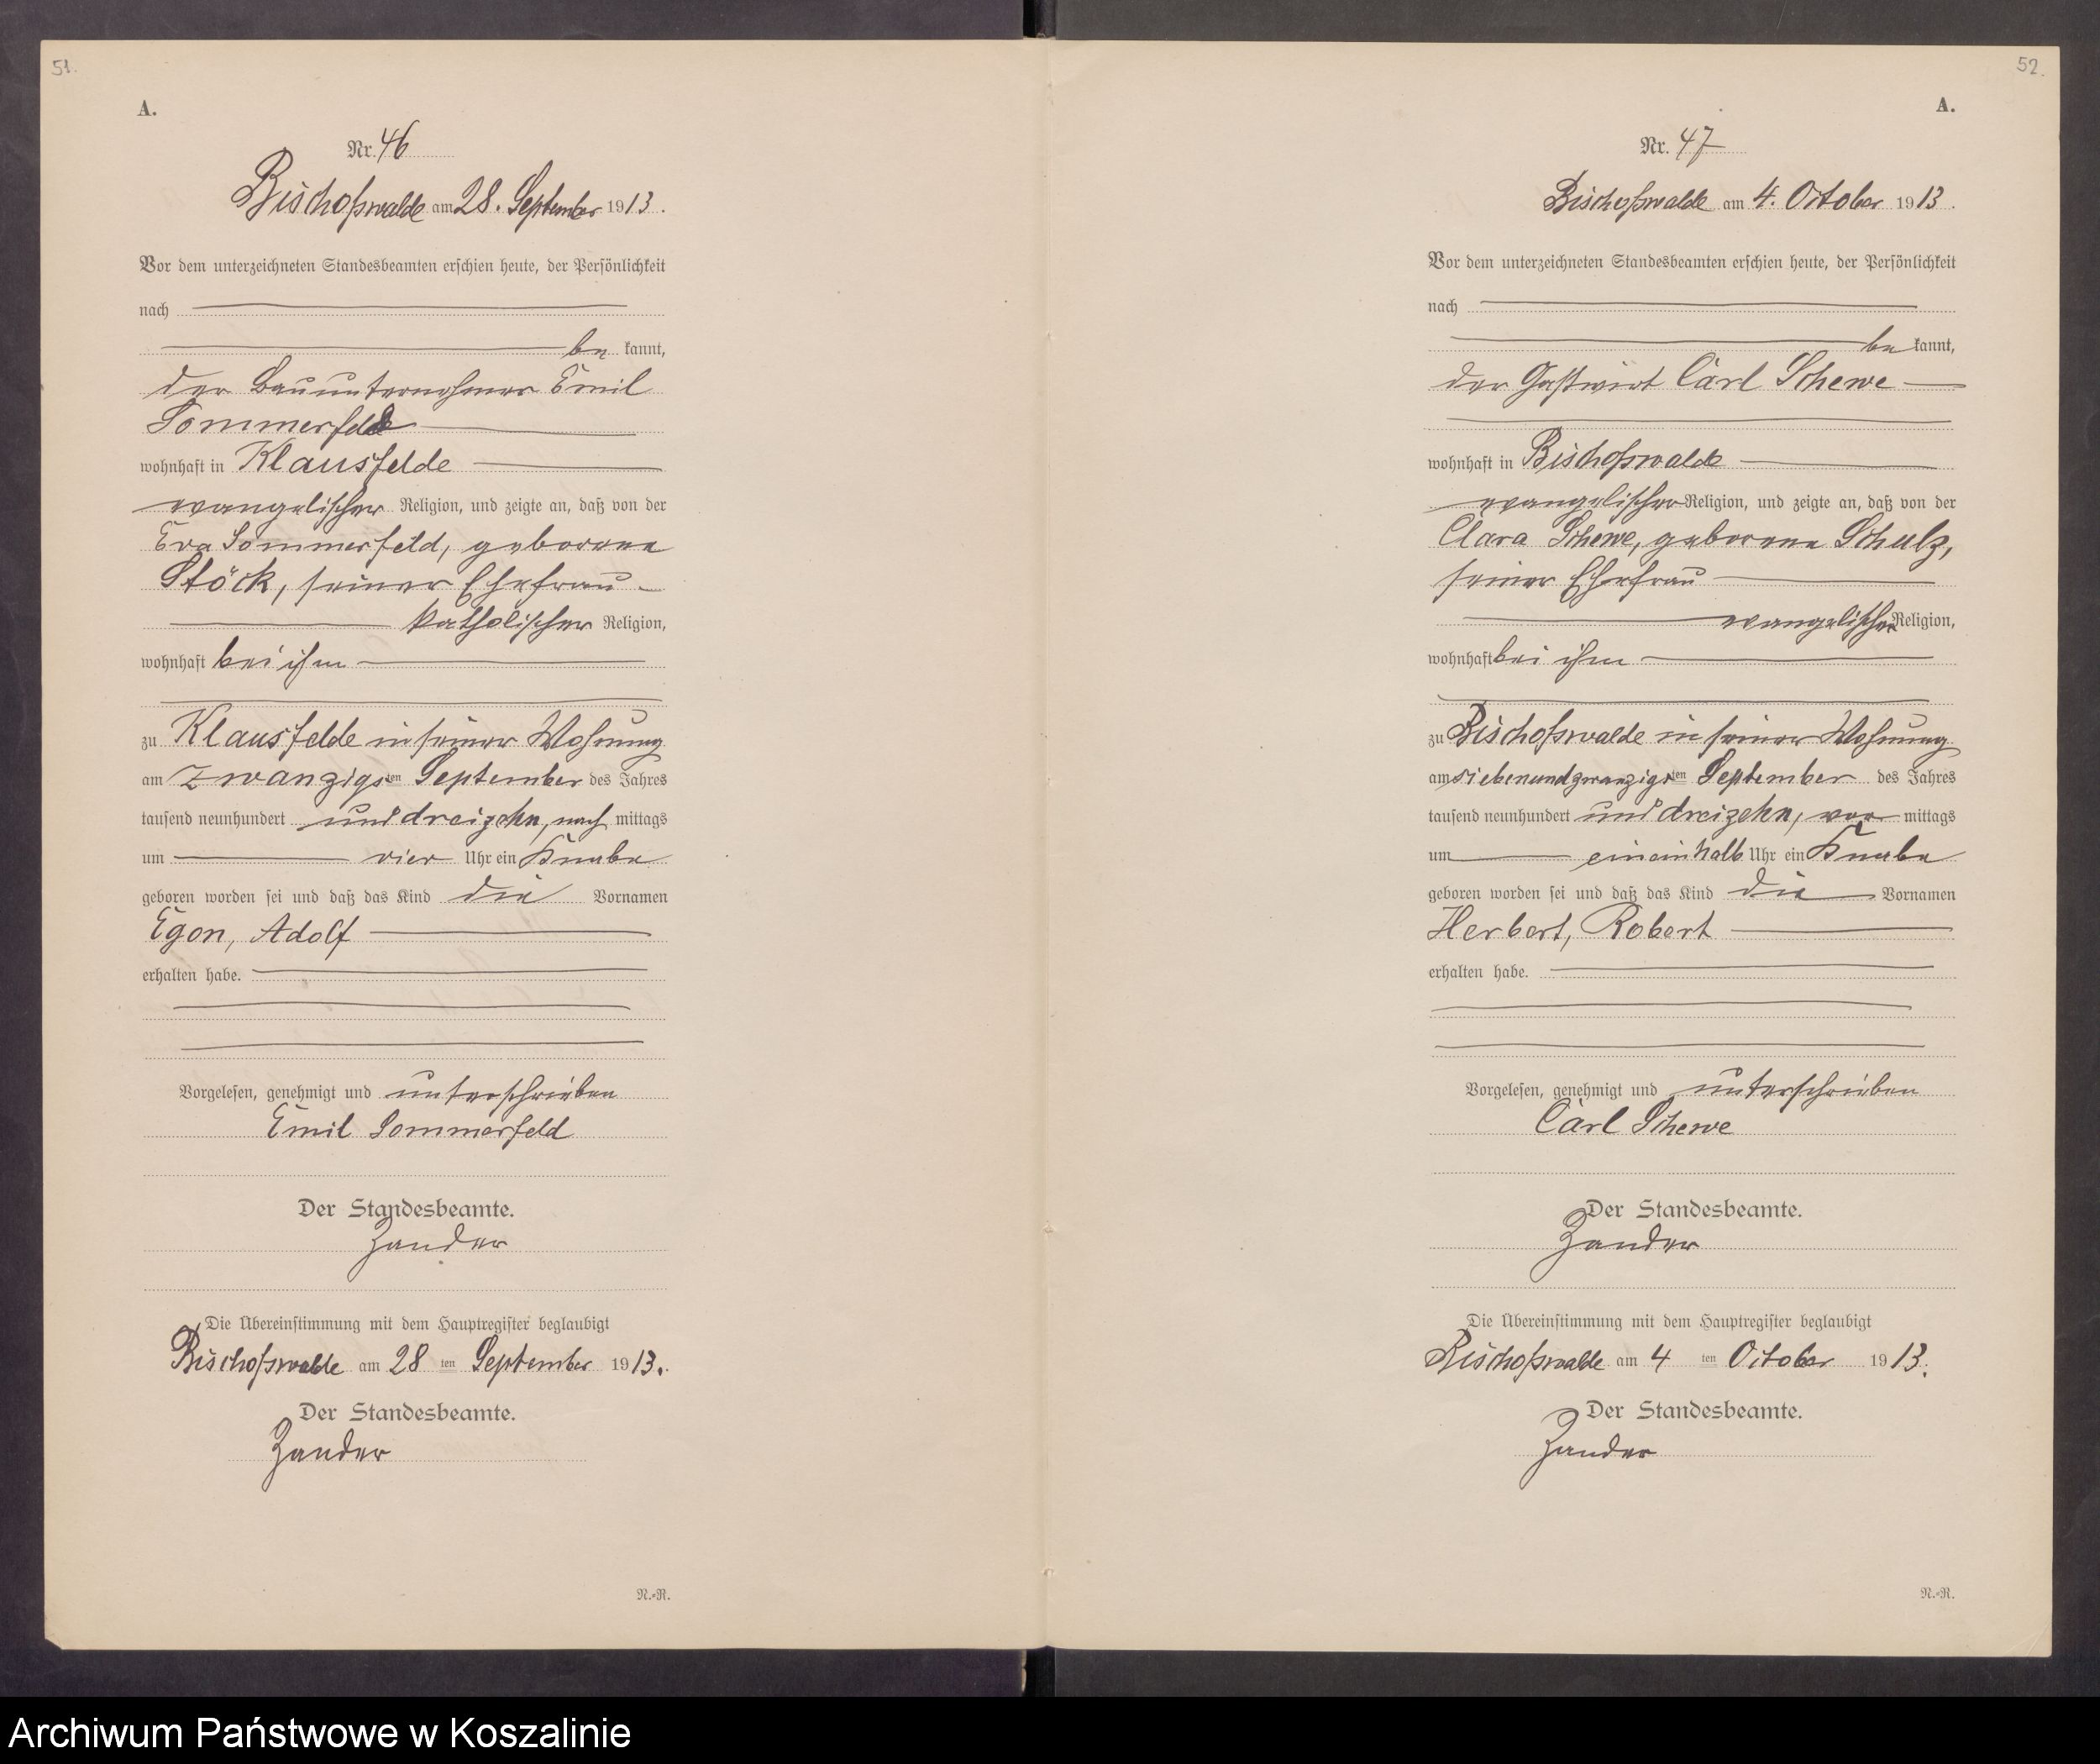 51.
A.
Nr. 46
Bischofswalde am 28. September 1913.
Vor dem unterzeichneten Standesbeamten erschien heute, der Persönlichkeit
nach
be kannt,
der Bauunternehmer Emil
Sommerfeld
wohnhaft in Klausfelde
evangelischer Religion, und zeigte an, daß von der
Eva Sommerfeld, geborene
Stöck, seiner Ehefrau
katholischer Religion,
wohnhaft bei ihm
zu Klausfelde in seiner Wohnung
am zwanzigsten September des Jahres
tausend neunhundert und dreizehn, nach mittags
um vier Uhr ein Knabe
geboren worden sei und daß das Kind die Vornamen
Egon, Adolf
erhalten habe.
Vorgelesen, genehmigt und unterschrieben
Emil Sommerfeld
Der Standesbeamte.
Zander
Die Übereinstimmung mit dem Hauptregister beglaubigt
Bischofswalde am 28 ten September 1913.
Der Standesbeamte.
Zander
N.-R.
52.
A.
Nr. 47
Bischofswalde am 4. October 1913.
Vor dem unterzeichneten Standesbeamten erschien heute, der Persönlichkeit
nach
be kannt,
der Gastwirt Carl Schewe
wohnhaft in Bischofswalde
evangelischer Religion, und zeigte an, daß von der
Clara Schewe, geborene Schulz,
seiner Ehefrau
evangelischer Religion,
wohnhaft bei ihm
zu Bischofswalde in seiner Wohnung
am siebenundzwanzigsten September des Jahres
tausend neunhundert und dreizehn, vor mittags
um eineinhalb Uhr ein Knabe
geboren worden sei und daß das Kind die Vornamen
Herbert, Robert
erhalten habe.
Vorgelesen, genehmigt und unterschrieben
Carl Schewe
Der Standesbeamte.
Zander
Die Übereinstimmung mit dem Hauptregister beglaubigt
Bischofswalde am 4 ten October 1913.
Der Standesbeamte.
Zander
N.-R.
Archiwum Państwowe w Koszalinie